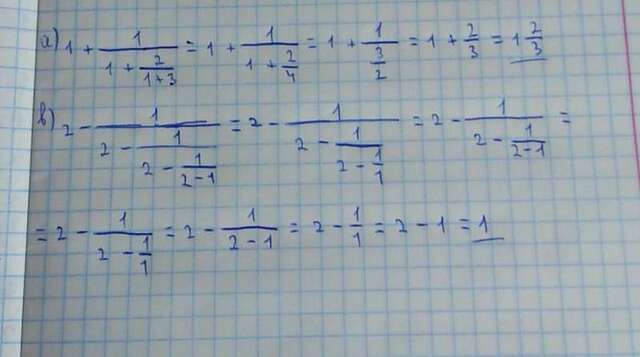 а) 1 + 1/(1 + 2/(1+3)) = 1 + 1/(1 + 2/4) = 1 + 1/(3/2) = 1 + 2/3 = 1 2/3
в) 2 - 1/(2 - 1/(2 - 1/(2-1))) = 2 - 1/(2 - 1/(2 - 1/1)) = 2 - 1/(2 - 1/(2-1)) =
= 2 - 1/(2 - 1/1) = 2 - 1/(2-1) = 2 - 1/1 = 2 - 1 = 1